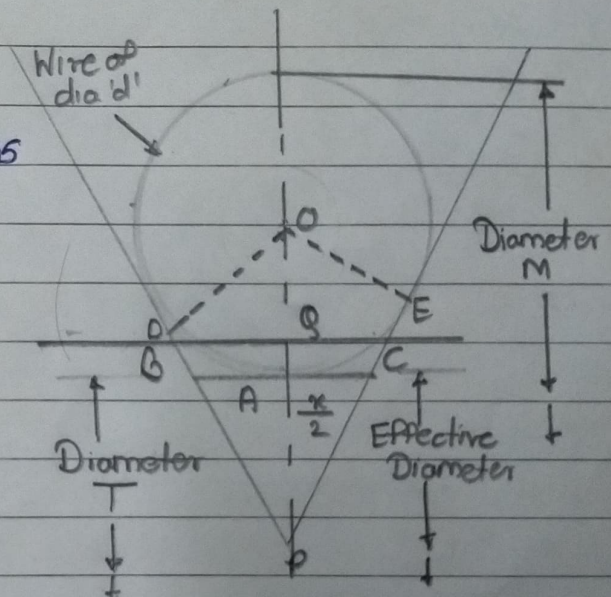 Wire of
dia 'd'
5
O
Diameter
M
D
Q
E
B
C
A
x/2
Effective
Diameter
Diameter
T
P